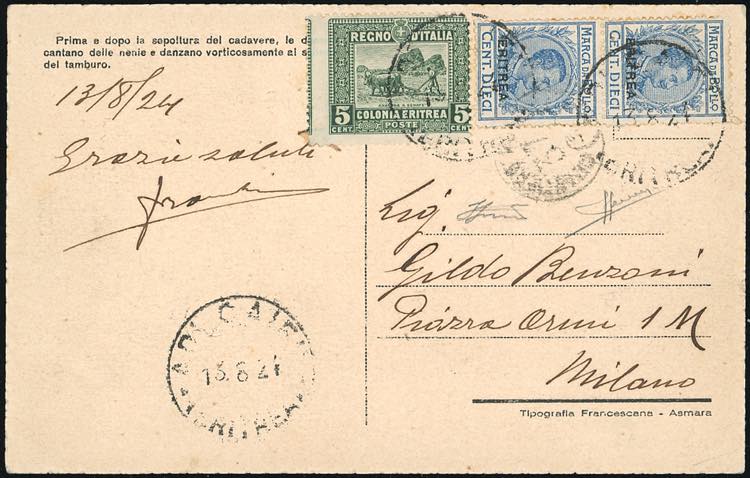 Prima e dopo la sepoltura del cadavere, le d
cantano delle nenie e danzano vorticosamente al s
del tamburo.
13/8/24
Grazie saluti
REGNO D'ITALIA
5 CENT. 5 CENT.
COLONIA ERITREA
POSTE
MARCA DA BOLLO
ERITREA
CENT. DIECI
MARCA DA BOLLO
ERITREA
CENT. DIECI
ERITREA
Sig.
Gildo Benzoni
Piazza Orini 1 M
Milano
ADI CAIEH
13.8.24
ERITREA
Tipografia Francescana - Asmara